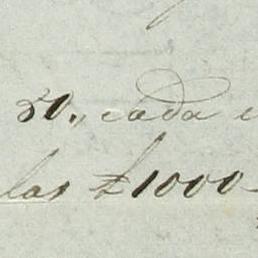 50., cada
las £1000